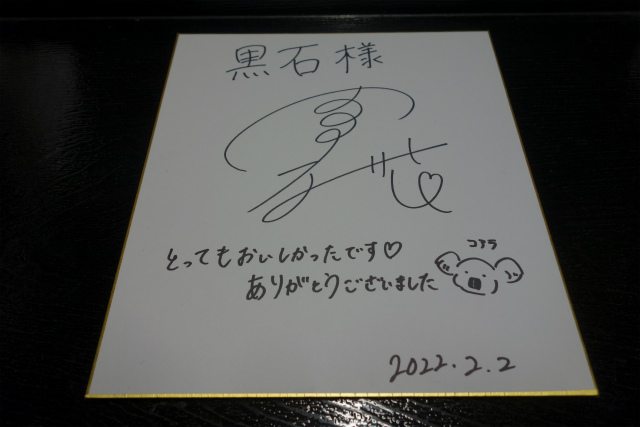 黒石様
とってもおいしかったです♡
コアラ
ありがとうございました
2022.2.2